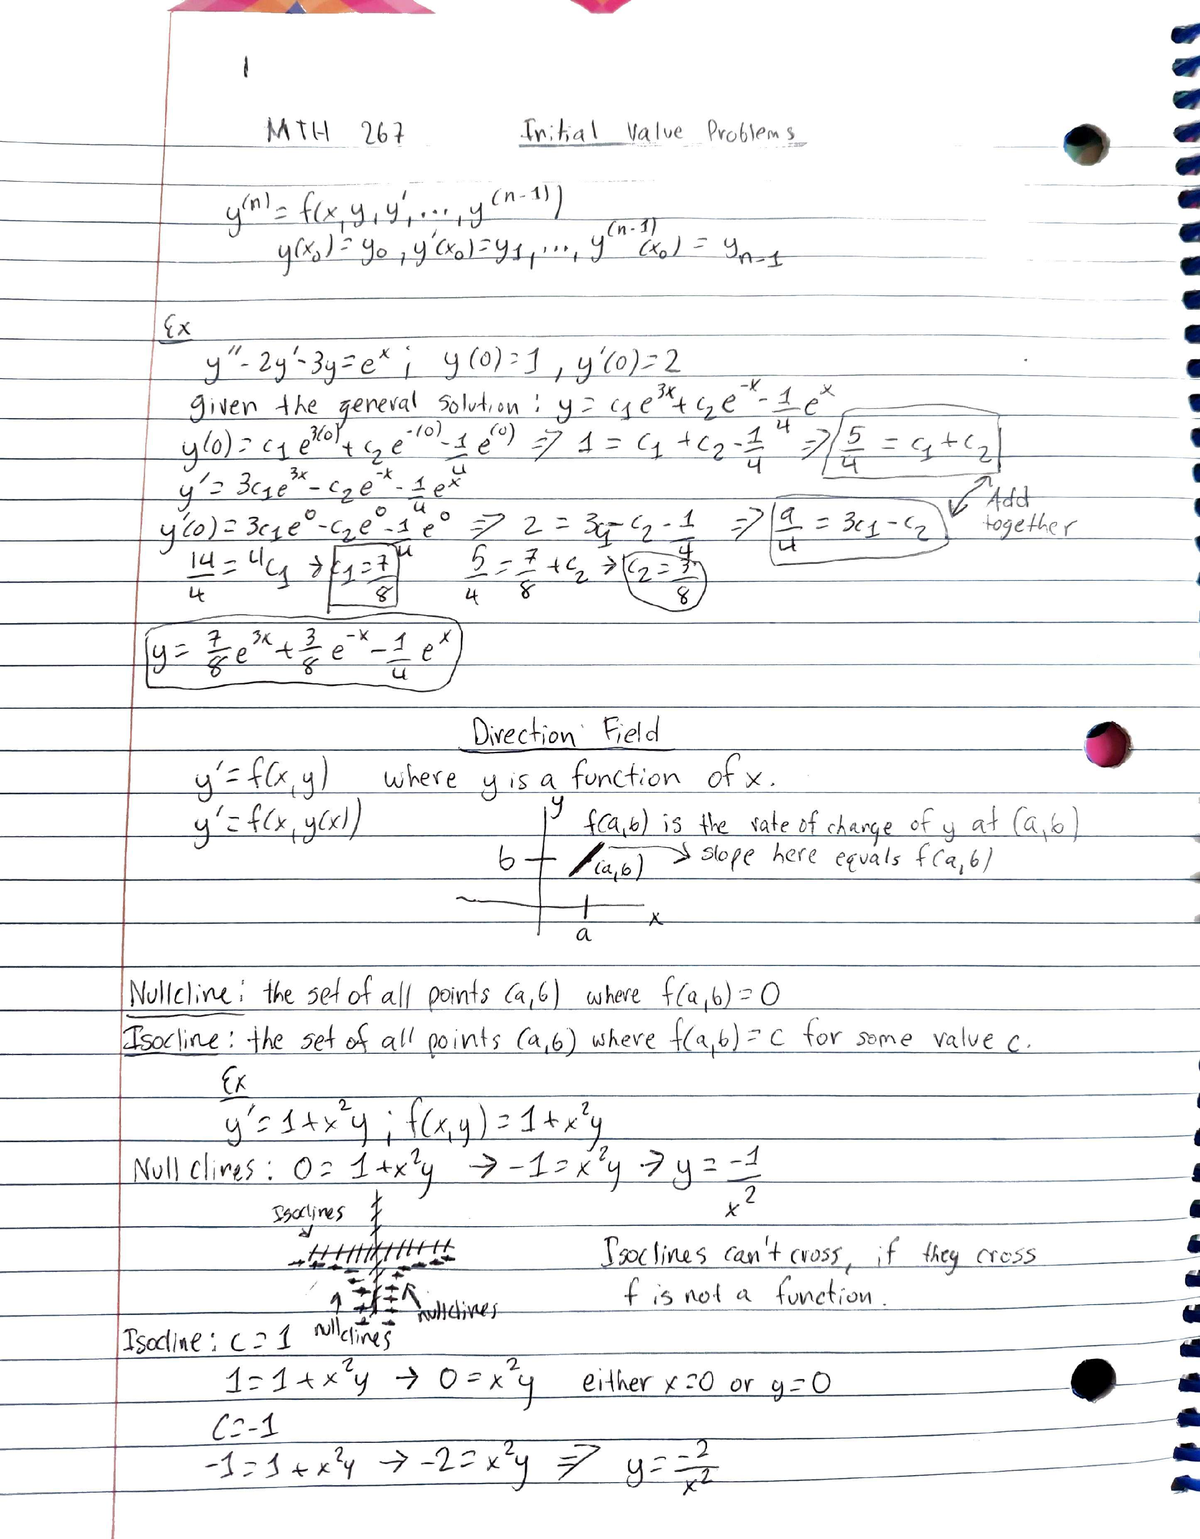 1
MTH 267 Initial Value Problems
y^(n) = f(x, y, y', ..., y^(n-1))
y(x₀) = y₀, y'(x₀) = y₁, ..., y^(n-1)(x₀) = y_{n-1}
Ex
y'' - 2y' - 3y = e^x ; y(0) = 1, y'(0) = 2
given the general solution : y = c₁e^{3x} + c₂e^{-x} - 1/4 e^x
y(0) = c₁e^{3(0)} + c₂e^{-(0)} - 1/4 e^{(0)} ⇒ 1 = c₁ + c₂ - 1/4 ⇒ 5/4 = c₁ + c₂
y' = 3c₁e^{3x} - c₂e^{-x} - 1/4 e^x
Add together
y'(0) = 3c₁e^0 - c₂e^0 - 1/4 e^0 ⇒ 2 = 3c₁ - c₂ - 1/4 ⇒ 9/4 = 3c₁ - c₂
14/4 = 4c₁ → c₁ = 7/8 5/4 = 7/8 + c₂ → c₂ = 3/8
y = 7/8 e^{3x} + 3/8 e^{-x} - 1/4 e^x
Direction Field
y' = f(x, y) where y is a function of x.
y' = f(x, y(x))
y f(a,b) is the rate of change of y at (a,b)
b (a,b) → slope here equals f(a,b)
x
a
Nullcline : the set of all points (a,b) where f(a,b) = 0
Isocline : the set of all points (a,b) where f(a,b) = c for some value c.
Ex
y' = 1 + x²y ; f(x,y) = 1 + x²y
Null clines : 0 = 1 + x²y → -1 = x²y → y = -1/x²
Isoclines
Isoclines can't cross, if they cross
f is not a function.
nullclines
nullclines
Isocline : c = 1
1 = 1 + x²y → 0 = x²y either x = 0 or y = 0
C = -1
-1 = 1 + x²y → -2 = x²y ⇒ y = -2/x²